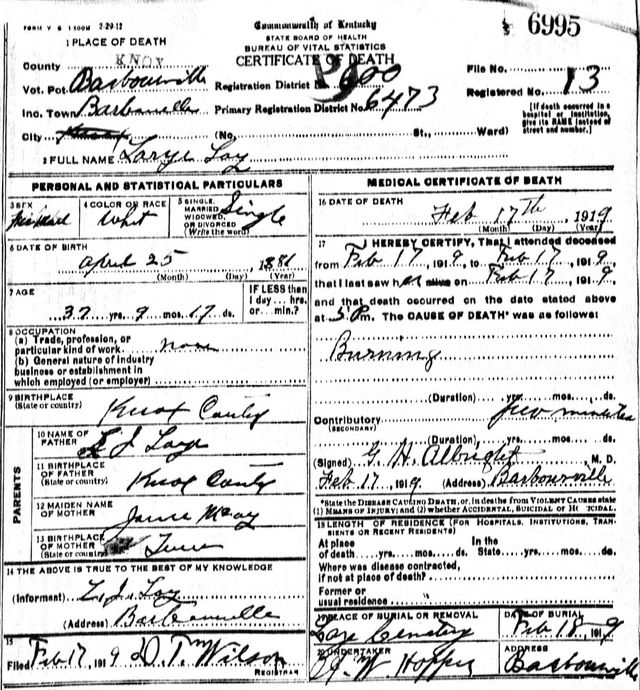 FORM V S 1 100M 2-29-12
Commonwealth of Kentucky
STATE BOARD OF HEALTH
BUREAU OF VITAL STATISTICS
CERTIFICATE OF DEATH
6995
1 PLACE OF DEATH
County KNOX
Vot. Pct. Barbourville
Registration District No. 600
File No.
Inc. Town Barbourville
Primary Registration District No. 6473
Registered No. 13
City
(No. St., Ward)
[If death occurred in a hospital or institution, give its NAME instead of street and number.]
2 FULL NAME Larye Lay
PERSONAL AND STATISTICAL PARTICULARS
3 SEX
4 COLOR OR RACE Whit
5 SINGLE, MARRIED, WIDOWED, OR DIVORCED (Write the word) Single
6 DATE OF BIRTH
April 25 1881
(Month) (Day) (Year)
7 AGE
37 yrs. 9 mos. 17 ds.
IF LESS than 1 day... hrs. or... min.?
8 OCCUPATION
(a) Trade, profession, or particular kind of work none
(b) General nature of industry business or establishment in which employed (or employer)
9 BIRTHPLACE
(State or country) Knox County
PARENTS
10 NAME OF FATHER J Lay
11 BIRTHPLACE OF FATHER
(State or country) Knox County
12 MAIDEN NAME OF MOTHER
13 BIRTHPLACE OF MOTHER
(State or country) Tenn
14 THE ABOVE IS TRUE TO THE BEST OF MY KNOWLEDGE
(Informant) L. J. Lay
(Address) Barbourville
15
Filed Feb 17, 1919 D. T. Wilson
REGISTRAR
MEDICAL CERTIFICATE OF DEATH
16 DATE OF DEATH
Feb 17th, 1919
(Month) (Day) (Year)
17 I HEREBY CERTIFY, That I attended deceased
from Feb 17, 1919, to Feb 17, 1919,
that I last saw her alive on Feb 17, 1919,
and that death occurred on the date stated above
at 5 Pm. The CAUSE OF DEATH* was as follows:
Burning
(Duration) yrs. mos. ds.
Contributory few minutes
(SECONDARY)
(Duration) yrs. mos. ds.
(Signed) G. H. Albright, M. D.
Feb 17, 1919 (Address) Barbourville
*State the DISEASE CAUSING DEATH, or, in deaths from VIOLENT CAUSES state (1) MEANS OF INJURY; and (2) whether ACCIDENTAL, SUICIDAL or HO ICIDAL.
18 LENGTH OF RESIDENCE (FOR HOSPITALS, INSTITUTIONS, TRANSIENTS OR RECENT RESIDENTS)
At place of death yrs. mos. ds.
In the State yrs. mos. ds.
Where was disease contracted, if not at place of death?
Former or usual residence
19 PLACE OF BURIAL OR REMOVAL
Cemetery
DATE OF BURIAL
Feb 18, 1919
20 UNDERTAKER
W Hopper
ADDRESS
Barbourville